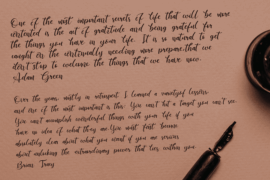 One of the most important secrets of life that will be more
is the art of gratitude and being grateful for
the things you have in your life. It is so natural to get
caught up the continually needing more that we
don't stop to welcome the things that we have now.
Adam Green
Over the years, mostly in retrospect I learned a variety of lessons.
one of the most important is this: You can't hit a target you can't see.
You can't accomplish wonderful things with your life if you
have no idea of what they are. You must first become
absolutely clear about what you want if you are serious
about unlocking the extraordinary power that lies within you.
Brian Tracy